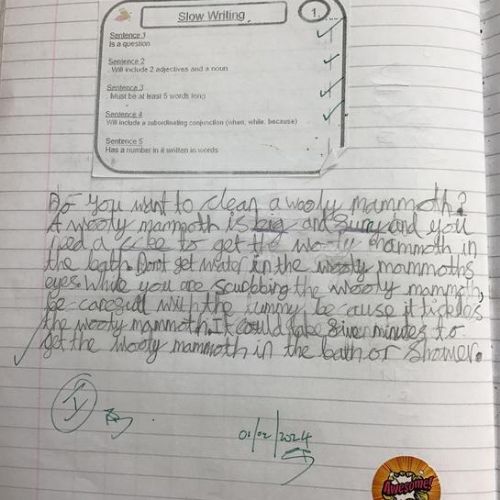 Slow Writing
1.
Sentence 1
Is a question
Sentence 2
. Will include 2 adjectives and a noun
Sentence 3
. Must be at least 5 words long
Sentence 4
Will include a subordinating conjunction (when, while, because)
Sentence 5
Has a number in it written in words
Do you want to clean a wooly mammoth?
A wooly mammoth is big and and you
need a to get the wooly mammoth in
the bath. Dont get water in the wooly mammoths
eyes. While you are scrubbing the wooly mammoth,
be carefull with the tummy because it tickles
the wooly mammoth. It could take minutes to
get the wooly mammoth in the bath or shower.
I
01/02/2024
Awesome!